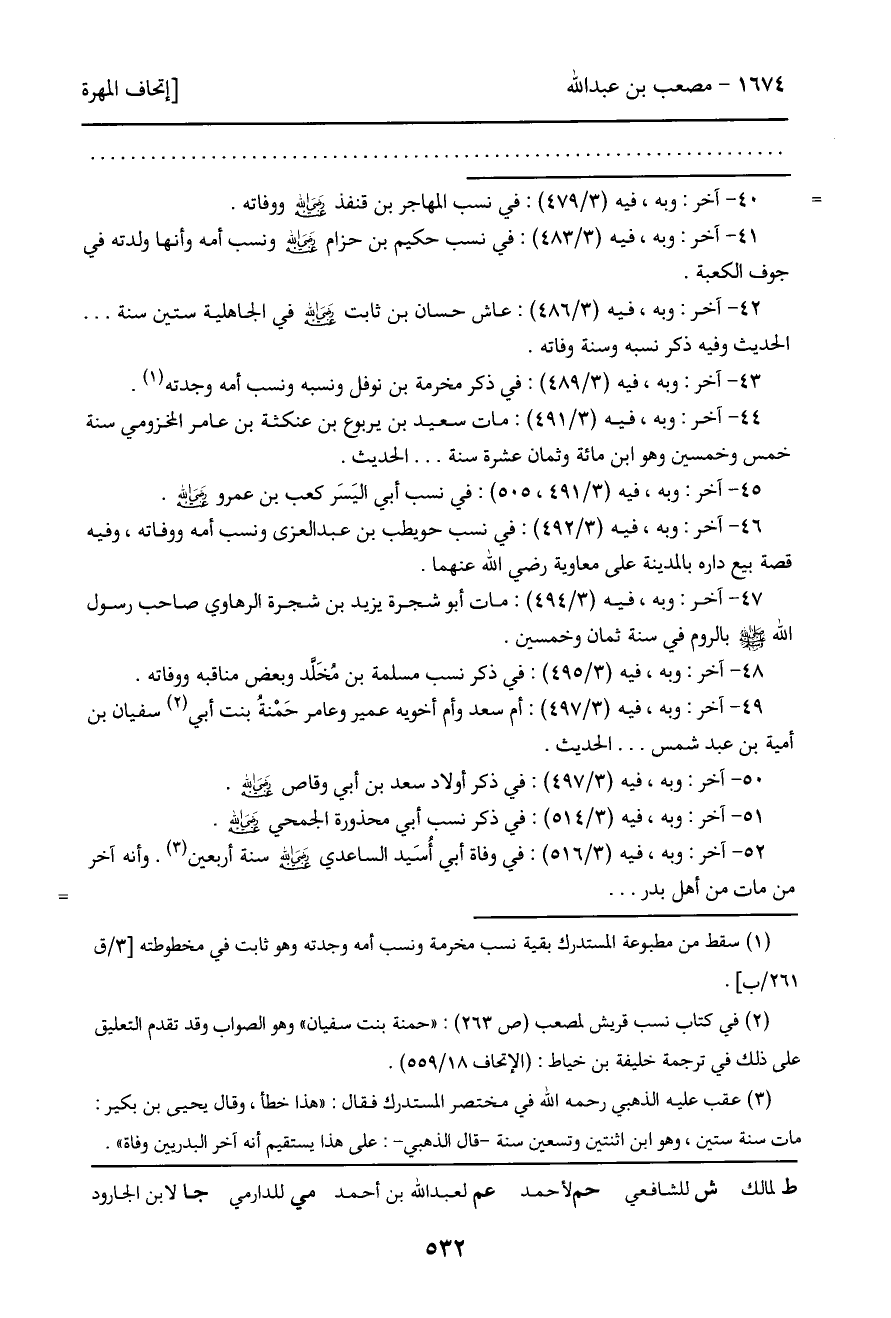 ١٦٧٤ - مصعب بن عبدالله [إتحاف المهرة
. . . . . . . . . . . . . . . . . . . . . . . . . . . . . . . . . . . . . . . . . . . . . . . . . . . . . . . . . . . . . . . . . . . .
= ٤٠- آخر : وبه ، فيه (٤٧٩/٣) : في نسب المهاجر بن قنفذ رضي الله عنه ووفاته .
٤١- آخر : وبه ، فيه (٤٨٣/٣) : في نسب حكيم بن حزام رضي الله عنه ونسب أمه وأنها ولدته في
جوف الكعبة .
٤٢- آخر : وبه ، فيه (٤٨٦/٣) : عاش حسان بن ثابت رضي الله عنه في الجاهلية ستين سنة . . .
الحديث وفيه ذكر نسبه وسنة وفاته .
٤٣- آخر : وبه ، فيه (٤٨٩/٣) : في ذكر مخرمة بن نوفل ونسبه ونسب أمه وجدته(١) .
٤٤- آخر : وبه ، فيه (٤٩١/٣) : مات سعيد بن يربوع بن عنكثة بن عامر المخزومي سنة
خمس وخمسين وهو ابن مائة وثمان عشرة سنة . . . الحديث .
٤٥- آخر : وبه ، فيه (٤٩١/٣ ، ٥٠٥) : في نسب أبي اليَسَر كعب بن عمرو رضي الله عنه .
٤٦- آخر : وبه ، فيه (٤٩٢/٣) : في نسب حويطب بن عبدالعزى ونسب أمه ووفاته ، وفيه
قصة بيع داره بالمدينة على معاوية رضي الله عنهما .
٤٧- آخر : وبه ، فيه (٤٩٤/٣) : مات أبو شجرة يزيد بن شجرة الرهاوي صاحب رسول
الله ﷺ بالروم في سنة ثمان وخمسين .
٤٨- آخر : وبه ، فيه (٤٩٥/٣) : في ذكر نسب مسلمة بن مُخَلَّد وبعض مناقبه ووفاته .
٤٩- آخر : وبه ، فيه (٤٩٧/٣) : أم سعد وأم أخويه عمير وعامر حَمْنةُ بنت أبي(٢) سفيان بن
أمية بن عبد شمس . . . الحديث .
٥٠- آخر : وبه ، فيه (٤٩٧/٣) : في ذكر أولاد سعد بن أبي وقاص رضي الله عنه .
٥١- آخر : وبه ، فيه (٥١٤/٣) : في ذكر نسب أبي محذورة الجمحي رضي الله عنه .
٥٢- آخر : وبه ، فيه (٥١٦/٣) : في وفاة أبي أُسَيد الساعدي رضي الله عنه سنة أربعين(٣) . وأنه آخر
من مات من أهل بدر . . . =
(١) سقط من مطبوعة المستدرك بقية نسب مخرمة ونسب أمه وجدته وهو ثابت في مخطوطته [٣/ق
٢٦١/ب] .
(٢) في كتاب نسب قريش لمصعب (ص ٢٦٣) : «حمنة بنت سفيان» وهو الصواب وقد تقدم التعليق
على ذلك في ترجمة خليفة بن خياط : (الإتحاف ٥٥٩/١٨) .
(٣) عقب عليه الذهبي رحمه الله في مختصر المستدرك فقال : «هذا خطأ ، وقال يحيى بن بكير :
مات سنة ستين ، وهو ابن اثنتين وتسعين سنة -قال الذهبي- : على هذا يستقيم أنه آخر البدريين وفاة» .
ط لمالك ش للشافعي حم لأحمد عم لعبدالله بن أحمد مي للدارمي جا لابن الجارود
٥٣٢